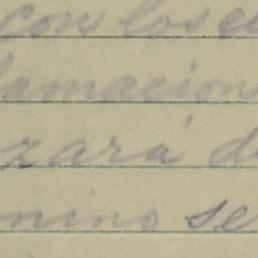 con los e
lamacion
zará d
nino se